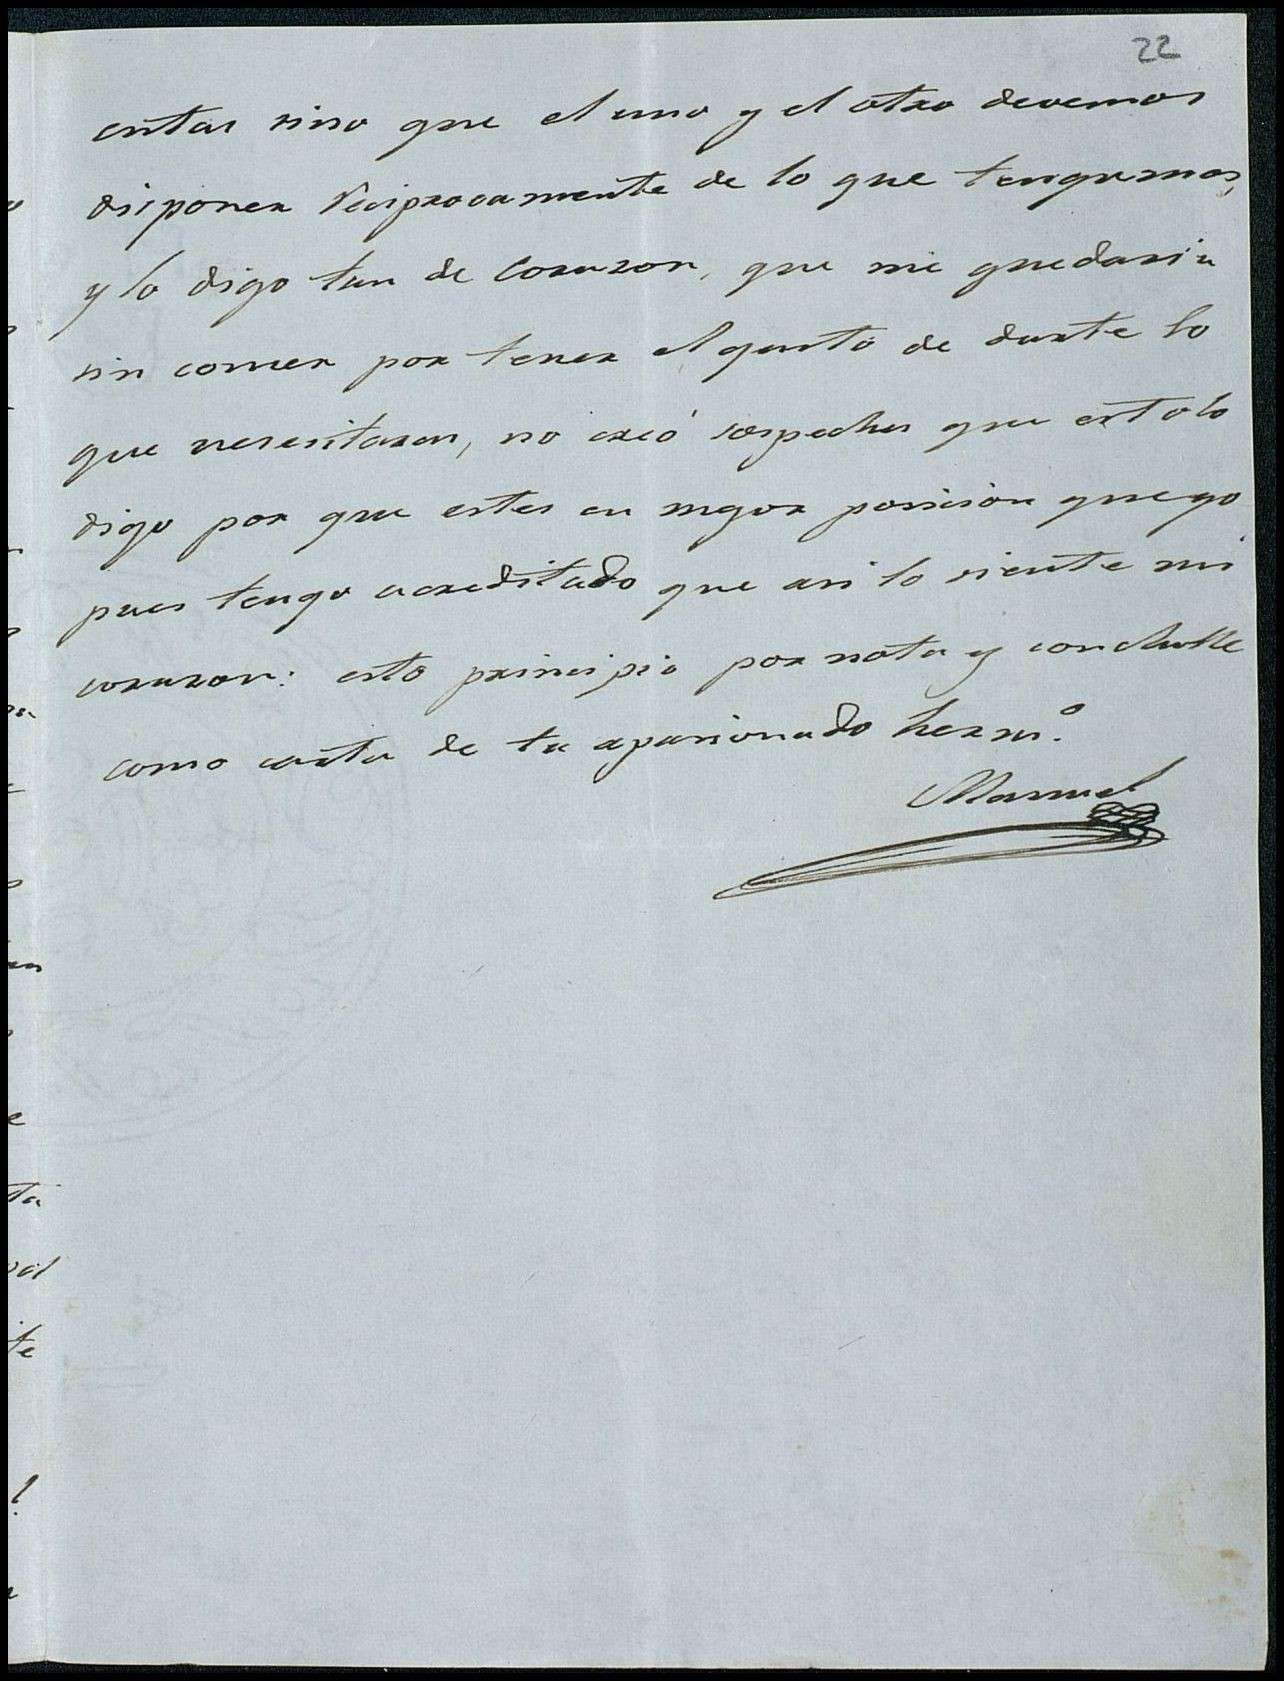 22
entas sino que el uno y el otro devemos
disponer Reciprocamente de lo que tengamos,
y lo digo tan de Corazon, que me quedaria
sin comer por tener el gusto de darte lo
que nesesitaras, no creó sospeches que esto lo
digo por que estes en mejor posision que yo
pues tengo acreditado que asi lo siente mi
corazon: esto principio por nota y conclulle
como carta de tu apasionado herm.º
Manuel